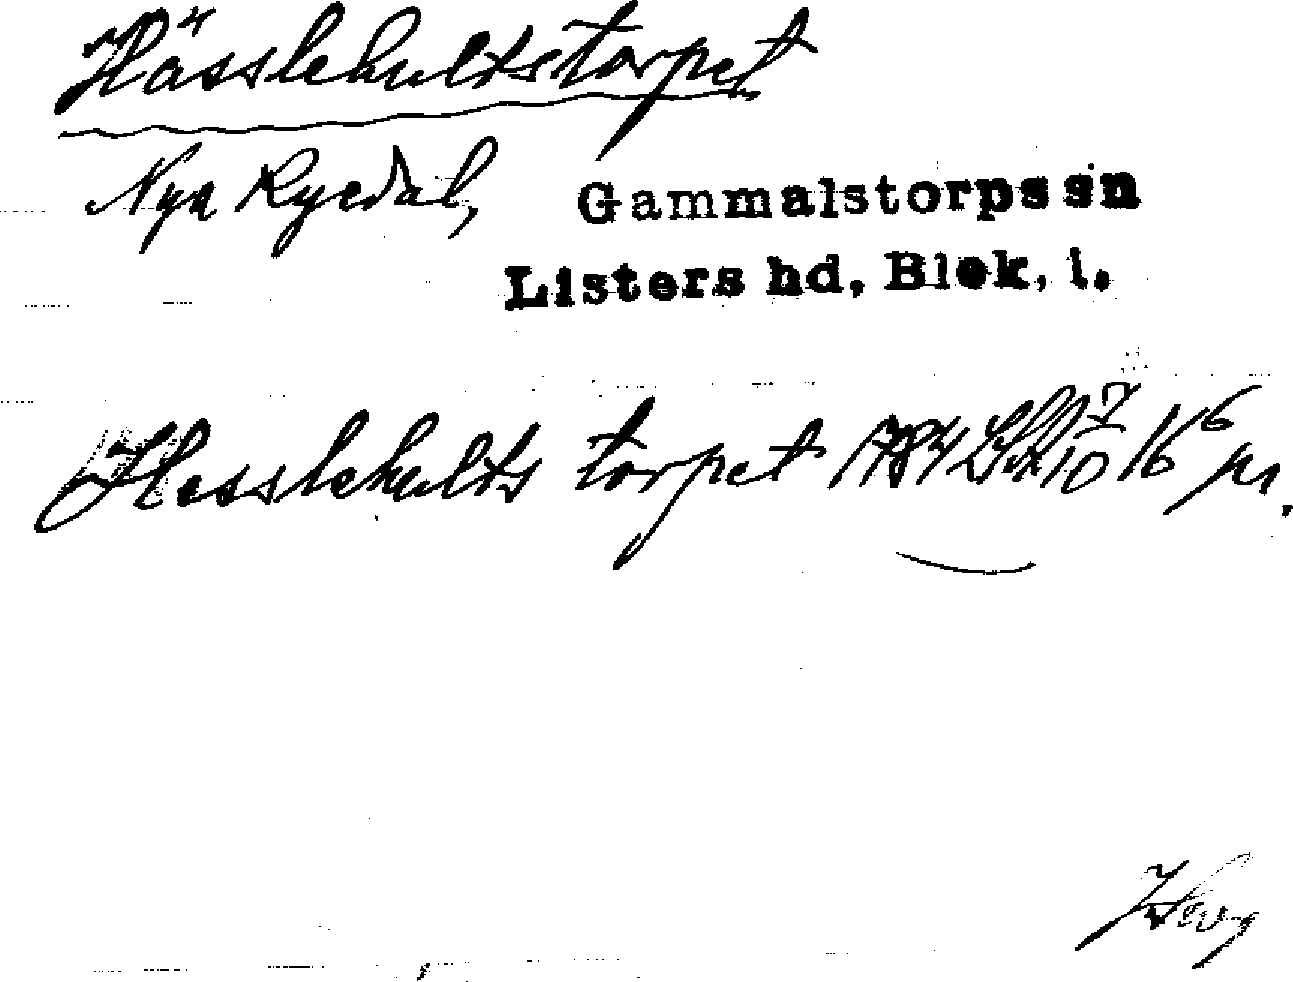 Hässlehultstorpet
Nya Ryedal, Gammalstorps sn
Listers hd, Blek. l.
Hesslehults torpet 1784 10 7 16 6